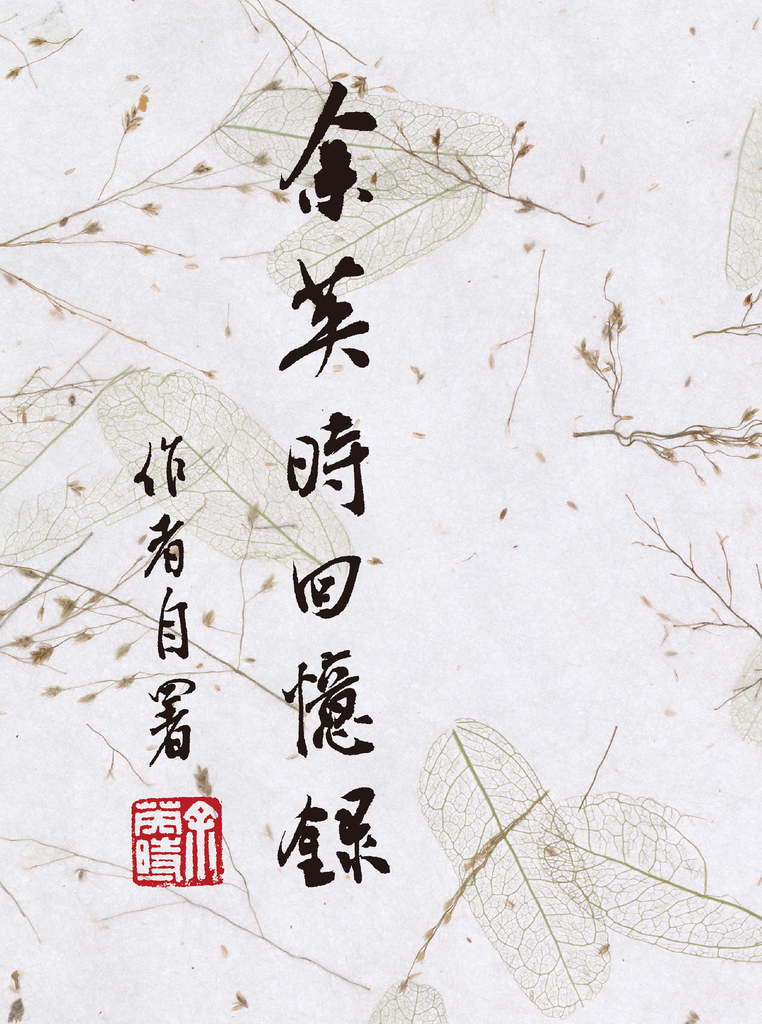 余英時回憶錄
作者自署
余英時